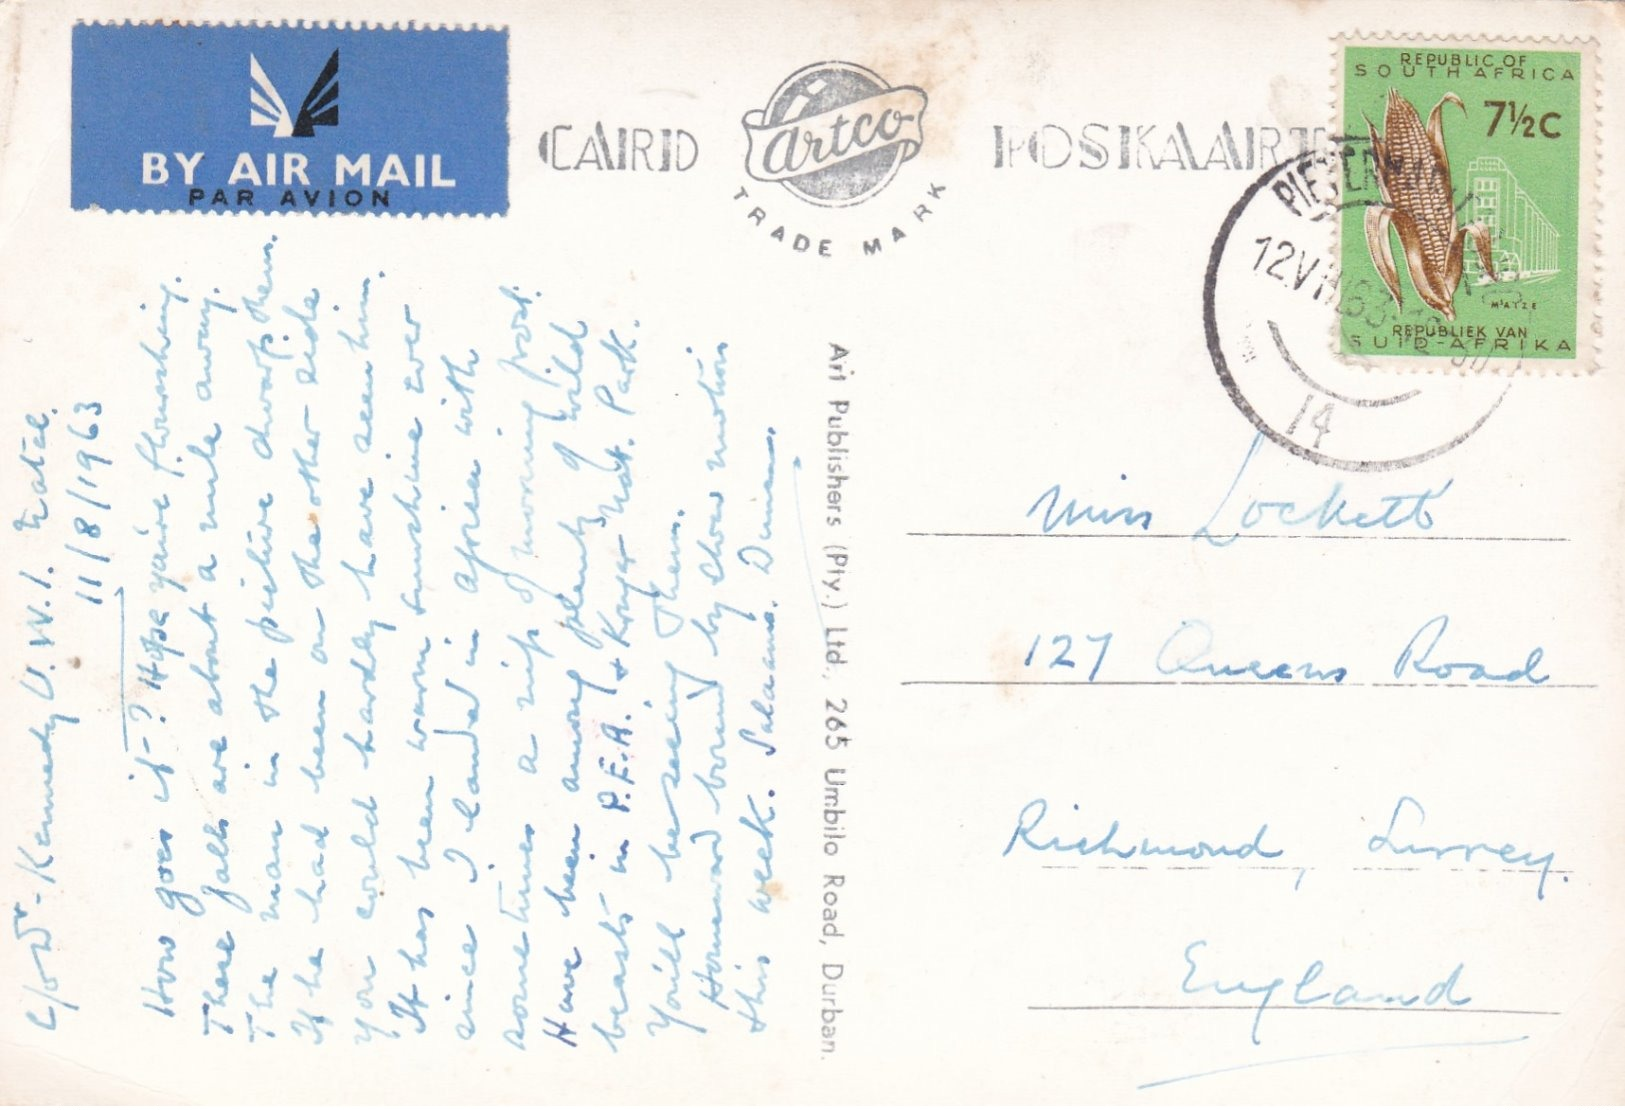 BY AIR MAIL
PAR AVION
CARD
artco
TRADE MARK
POSKAART
REPUBLIC OF
SOUTH AFRICA
7½c
MAIZE
REPUBLIEK VAN
SUID-AFRIKA
12 VIII 63
14
c/o Dr. Kennedy U.W.I. Estcc.
11/8/1963
How goes it-? Hope you're flourishing.
These falls are about a mile away.
The man in the picture dwarfs them.
If he had been on the other side
you could hardly have seen him.
It has been warm sunshine ever
since I landed in Africa with
sometimes a nip of morning frost.
Have been among plenty of wild
beasts in P.E.A. & Kruger Nat. Park.
You'll be seeing them.
Homeward bound by slow motion
this week. Salaams.
Art Publishers (Pty.) Ltd., 265 Umbilo Road, Durban.
Miss Lockett
127 Queens Road
Richmond, Surrey.
England